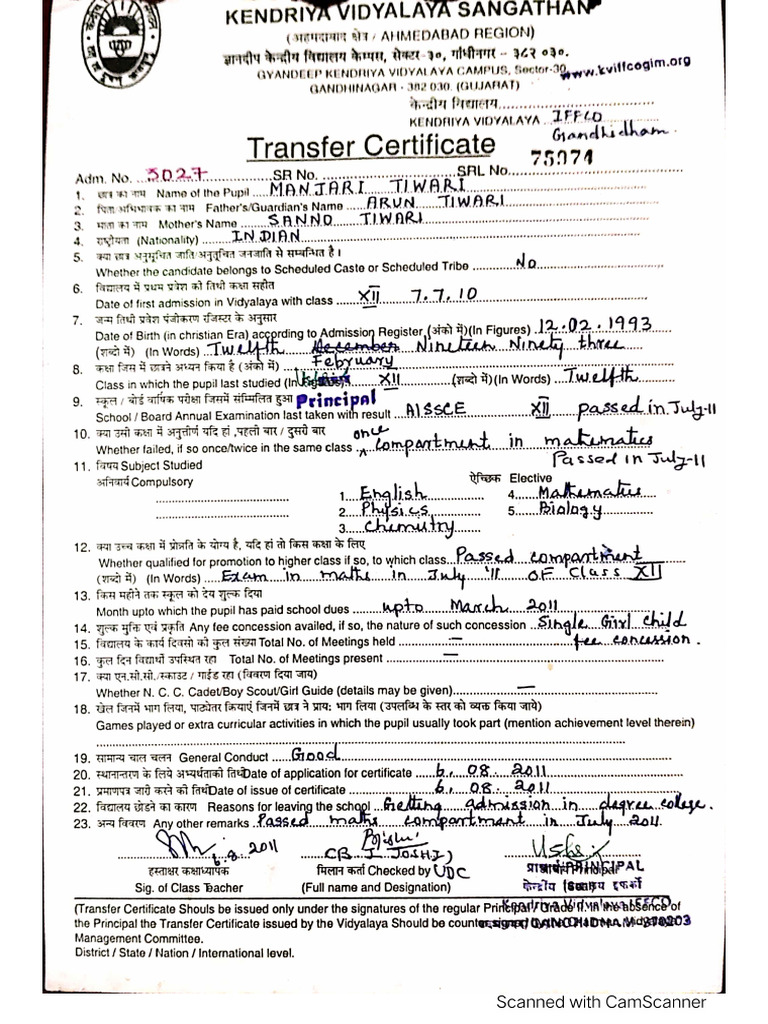 KENDRIYA VIDYALAYA SANGATHAN
(अहमदाबाद क्षेत्र / AHMEDABAD REGION)
ज्ञानदीप केन्द्रीय विद्यालय केम्पस, सेक्टर-३०, गांधीनगर - ३८२ ०३०.
GYANDEEP KENDRIYA VIDYALAYA CAMPUS, Sector-30, www.kviffcogim.org
GANDHINAGAR - 382 030. (GUJARAT)
केन्द्रीय विद्यालय
KENDRIYA VIDYALAYA IFFCO
Gandhidham.
Transfer Certificate
75074
Adm. No. 3027 SR No. SRL No.
1. छात्र का नाम Name of the Pupil MANJARI TIWARI
2. पिता अभिभावक का नाम Father's/Guardian's Name ARUN TIWARI
3. माता का नाम Mother's Name SANNO TIWARI
4. राष्ट्रीयता (Nationality) INDIAN
5. क्या छात्र अनुसूचित जाति/अनुसूचित जनजाति से सम्बन्धित है।
Whether the candidate belongs to Scheduled Caste or Scheduled Tribe No
6. विद्यालय में प्रथम प्रवेश की तिथी कक्षा सहीत
Date of first admission in Vidyalaya with class XII 7.7.10
7. जन्म तिथी प्रवेश पंजीकरण रजिस्टर के अनुसार
Date of Birth (in christian Era) according to Admission Register (अंको में)(In Figures) 12.02.1993
(शब्दो में) (In Words) Twelfth December Nineteen Ninety three
February
8. कक्षा जिस में छात्रने अध्यन किया है (अंको में)
Class in which the pupil last studied (In XII (शब्दो में)(In Words) Twelfth
9. स्कूल / बोर्ड वार्षिक परीक्षा जिसमें संम्मिलित हुआ Principal
School / Board Annual Examination last taken with result AISSCE XII passed in July-11
10. क्या उसी कक्षा में अनुत्तीर्ण यदि हां ,पहली बार / दुसरी बार once
Whether failed, if so once/twice in the same class compartment in mathematics
Passed in July-11
11. विषय Subject Studied ऐच्छिक Elective
अनिवार्य Compulsory
1. English 4. Mathematics
2. Physics 5. Biology
3. Chemistry
12. क्या उच्च कक्षा में प्रोन्नति के योग्य है, यदि हां तो किस कक्षा के लिए
Whether qualified for promotion to higher class if so, to which class Passed compartment
(शब्दो में) (In Words) Exam in maths in July '11 OF Class XII
13. किस महीने तक स्कूल को देय शुल्क दिया
Month upto which the pupil has paid school dues upto March 2011
14. शुल्क मुक्ति एवं प्रकृति Any fee concession availed, if so, the nature of such concession Single Girl child
15. विद्यालय के कार्य दिवसो की कुल संख्या Total No. of Meetings held — fee concession.
16. कुल दिन विद्यार्थी उपस्थित रहा Total No. of Meetings present —
17. क्या एन.सी.सी./स्काउट / गाईड रहा (विवरण दिया जाय)
Whether N. C. C. Cadet/Boy Scout/Girl Guide (details may be given) —
18. खेल जिनमें भाग लिया, पाठ्येतर क्रियाएं जिनमें छात्र ने प्रायः भाग लिया (उपलब्धि के स्तर को व्यक्त किया जाये)
Games played or extra curricular activities in which the pupil usually took part (mention achievement level therein)
19. सामान्य चाल चलन General Conduct Good
20. स्थानान्तरण के लिये अभ्यर्थताकी तिथी Date of application for certificate 6. 08. 2011
21. प्रमाणपत्र जारी करने की तिथी Date of issue of certificate 6. 08. 2011
22. विद्यालय छोडने का कारण Reasons for leaving the school Getting admission in degree college.
23. अन्य विवरण Any other remarks Passed maths compartment in July 2011.
6.8.2011
(B J JOSHI)
हस्ताक्षर कक्षाध्यापक मिलान कर्ता Checked by UDC प्राचार्य PRINCIPAL
Sig. of Class Teacher (Full name and Designation) केन्द्रीय (Seal) इफको
Kendriya Vidyalaya IFFCO
GANDHIDHAM-370203
(Transfer Certificate Shouls be issued only under the signatures of the regular Principal / Grade II. In the absence of
the Principal the Transfer Certificate issued by the Vidyalaya Should be counter signed
Management Committee.
District / State / Nation / International level.
Scanned with CamScanner